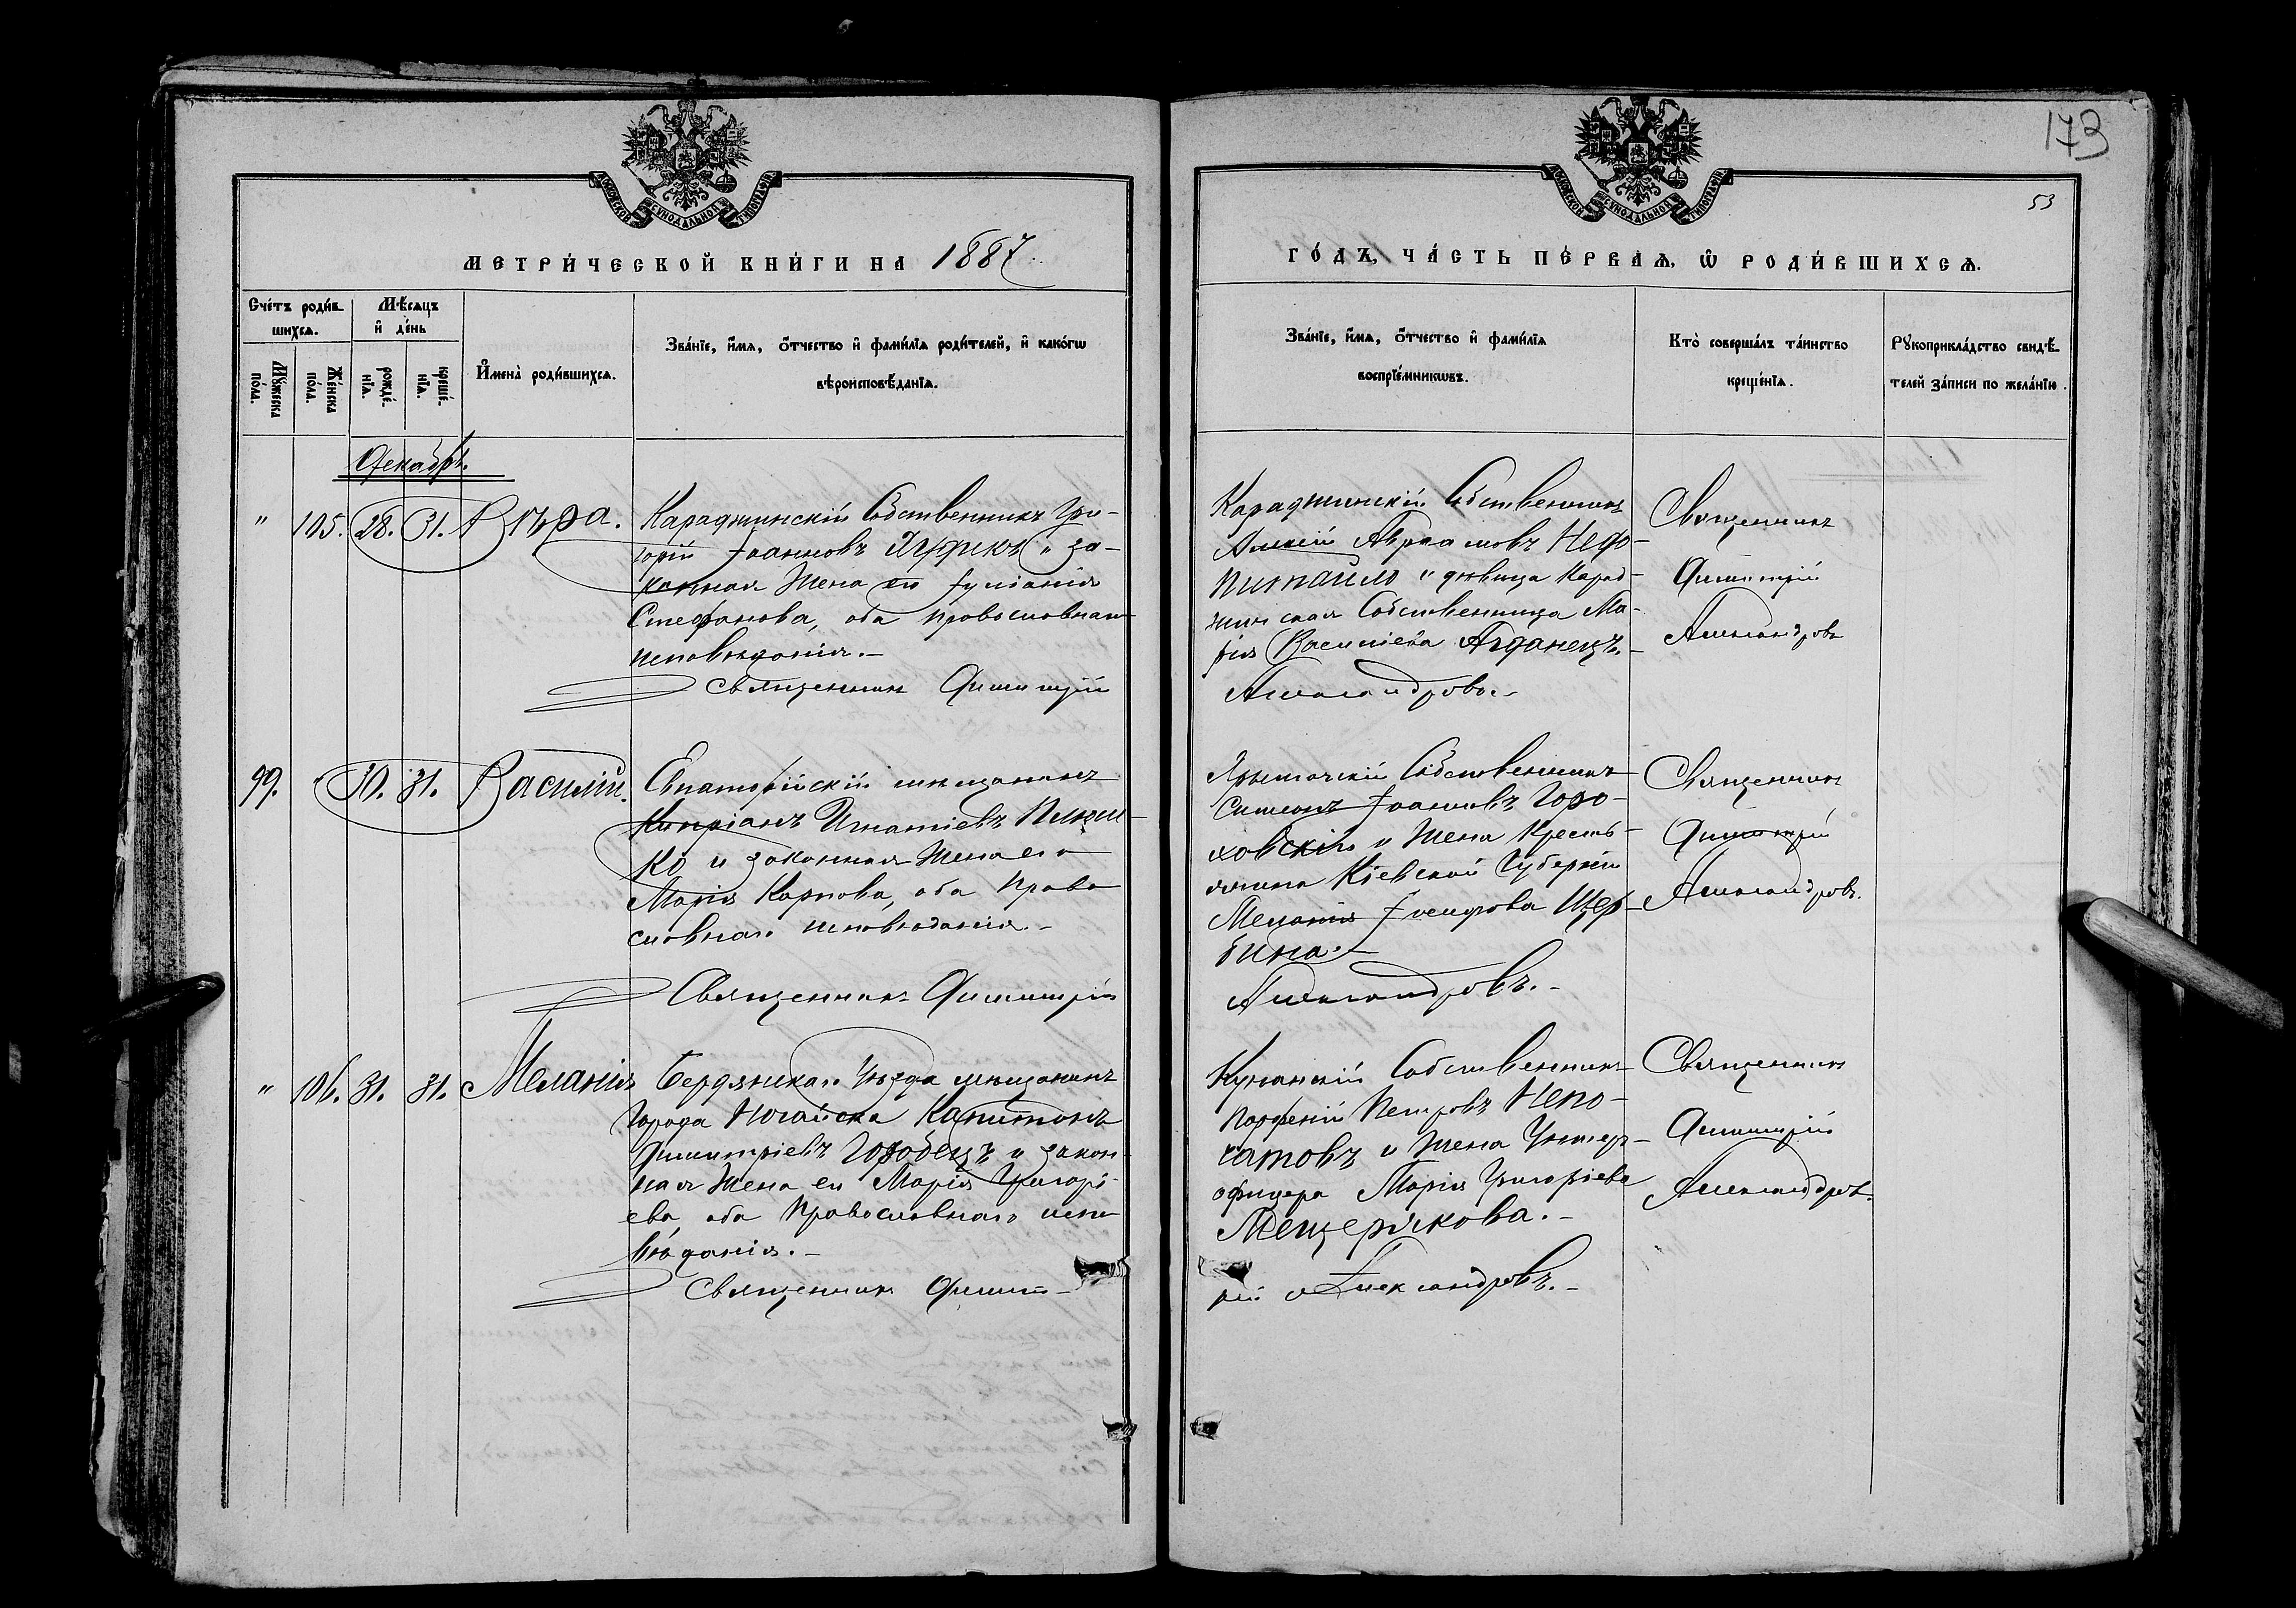 173
53
МОСКОВСКОЙ СѴНОДАЛЬНОЙ ТИПОГРАФІИ
МОСКОВСКОЙ СѴНОДАЛЬНОЙ ТИПОГРАФІИ
МЕТРИ́ЧЕСКОЙ КНИ́ГИ НА 1887
ГО́ДЪ, ЧА́СТЬ ПЕ́РВАѦ, Ѡ РОДИ́ВШИХСѦ.
Сче́тъ роди́в-
шихсѧ.
Мѣ́сѧцъ
и҆ де́нь
Мꙋ́жеска
по́ла.
Же́нска
по́ла.
рожде́-
нїѧ.
креще́-
нїѧ.
И҆мена̀ роди́вшихсѧ.
Зва́нїе, и҆́мѧ, ѻ҆́тчество и҆ фами́лїѧ роди́телей, и҆ како́гѡ
вѣроисповѣ́данїѧ.
Зва́нїе, и҆́мѧ, ѻ҆́тчество и҆ фами́лїѧ
воспрїе́мникѡвъ.
Кто̀ соверша́лъ та́инство
креще́нїѧ.
Рꙋкоприкла́дство свидѣ́-
телей за́писи по жела́нїю.
Декабрь.
" 105. 28. 31. Вѣра.
Караджинскій Собственникъ Гри-
горій Іоанновъ и за-
конная жена ея Іуліанія
Стефанова, оба православнаго
исповѣданія. –
Священникъ Димитрій
Караджинскій Собственникъ
Алексій Авраамовъ Недо-
питайло и дѣвица Карад-
жинская Собственница Ма-
рія Василіева
Александровъ. –
Священникъ
Димитрій
Александровъ
99. " 30. 31. Василій.
Евпаторійскій мѣщанинъ
Кипріанъ Игнатіевъ
ко и законная жена его
Марія Карпова, оба Право-
славнаго исповѣданія. –
Священникъ Димитрій
Собственникъ
Симеонъ Іоанновъ Горо-
ховскій и жена Кресть-
янина Кіевской Губерніи
Меланія Іосифова Щер-
бина. –
Александровъ. –
Священникъ
Димитрій
Александровъ.
" 106. 31. 31. Меланія
Бердянскаго Уѣзда мѣщанинъ
города Ногайска Капитонъ
Димитріевъ Горобецъ и закон-
ная жена ея Марія Григорі-
ева, оба Православнаго испо-
вѣданія. –
Священникъ Димит-
Собственникъ
Порфирій Петровъ Непо-
чатовъ и жена Унтеръ-
офицера Марія Григоріева
Мещерякова. –
рій Александровъ. –
Священникъ
Димитрій
Александровъ.